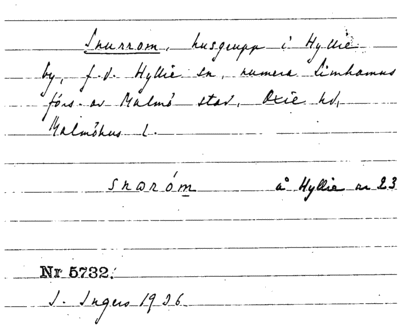 Snurrom, husgrupp i Hyllie
by, f.d. Hyllie sn, numera Limhamns
förs. av Malmö stad, Oxie hd,
Malmöhus l.
snaróm å Hyllie nr 23
Nr 5732.
I. Ingers 1936.